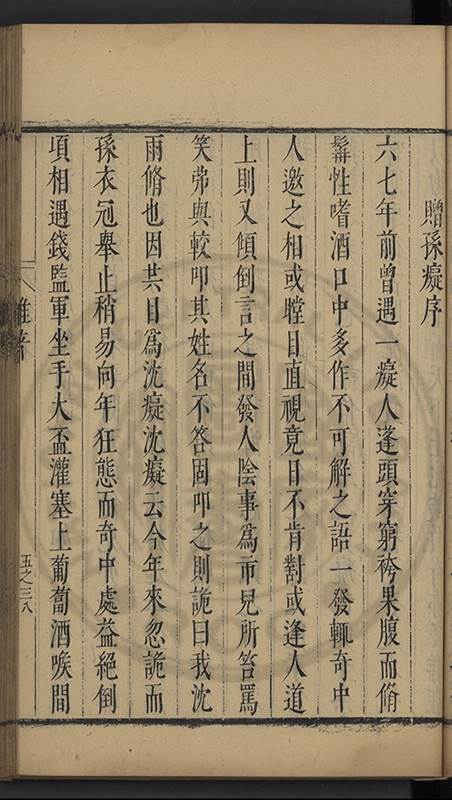 贈孫癡序
六七年前曾遇一癡人蓬頭穿窮袴果腹而脩
髯性嗜酒口中多作不可解之語一發輒奇中
人邀之相或瞠目直視竟日不肯對或逢人道
上則又傾倒言之間發人陰事為市兒所笞罵
笑弗與較叩其姓名不答固叩之則詭曰我沈
雨脩也因共目為沈癡沈癡云今年來忽詭而
孫衣冠舉止稍易向年狂態而奇中處益絕倒
項相遇錢監軍坐手大盃灌塞上葡萄酒喉間
雜著
五之三八